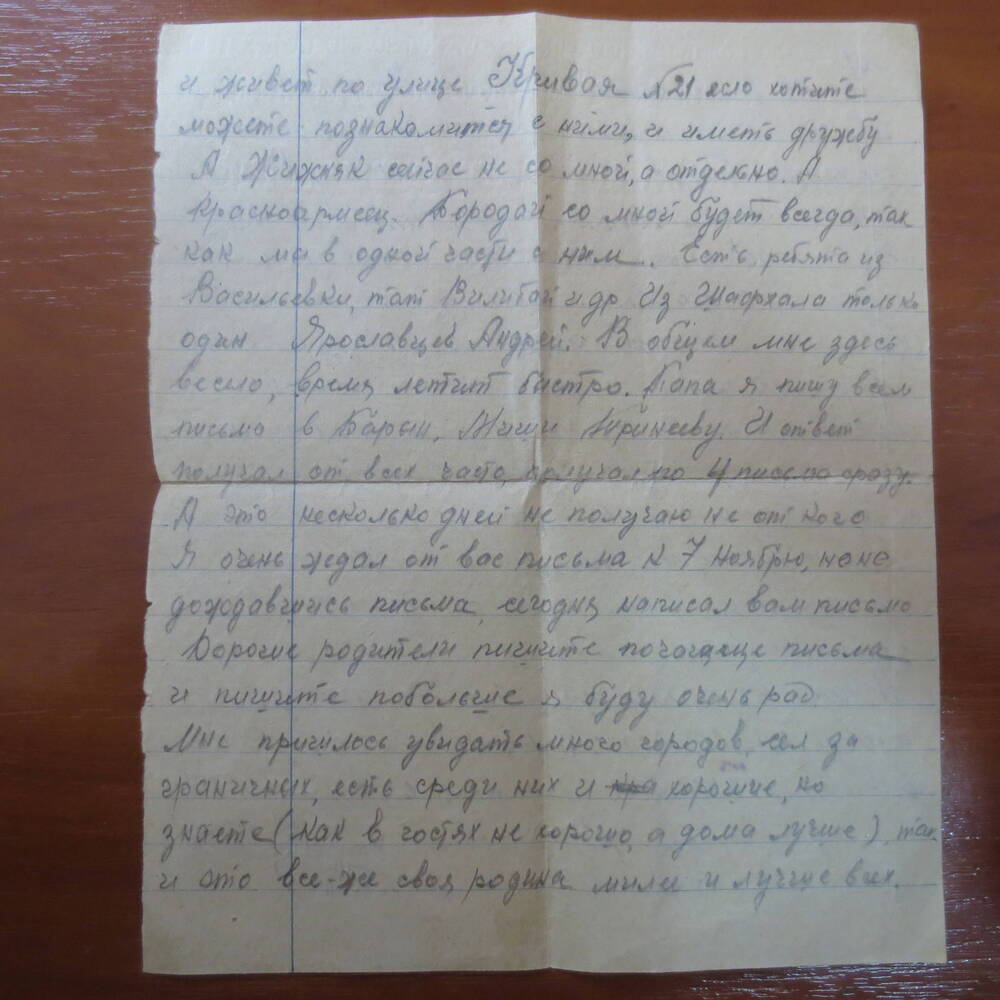 и живет по улице Кривая №21 если хотите
можете познакомится с ними, и иметь дружбу
А Жижняк сейчас не со мной, а отдельно. А
красноармеец. Бородай со мной будет всегда, так
как мы в одной части с ним. Есть ребята из
Васильевки, тат и др Из только
один Ярославцев Андрей. В общем мне здесь
весело, время летит быстро. Папа я пишу всем
письма в Мише И ответ
получал от всех часто, получал по 4 письма сразу.
А это несколько дней не получаю не от кого
Я очень ждал от вас письма к 7 Ноябрю, но не
дождавшись письма, сегодня написал вам письмо
Дорогие родители пишите почаще письма
и пишите побольше я буду очень рад
Мне пришлось увидать много городов, сел за
граничных, есть среди них и хорошие, но
знаете (как в гостях не хорошо, а дома лучше), так
и это все-же своя родина милее и лучше всех.